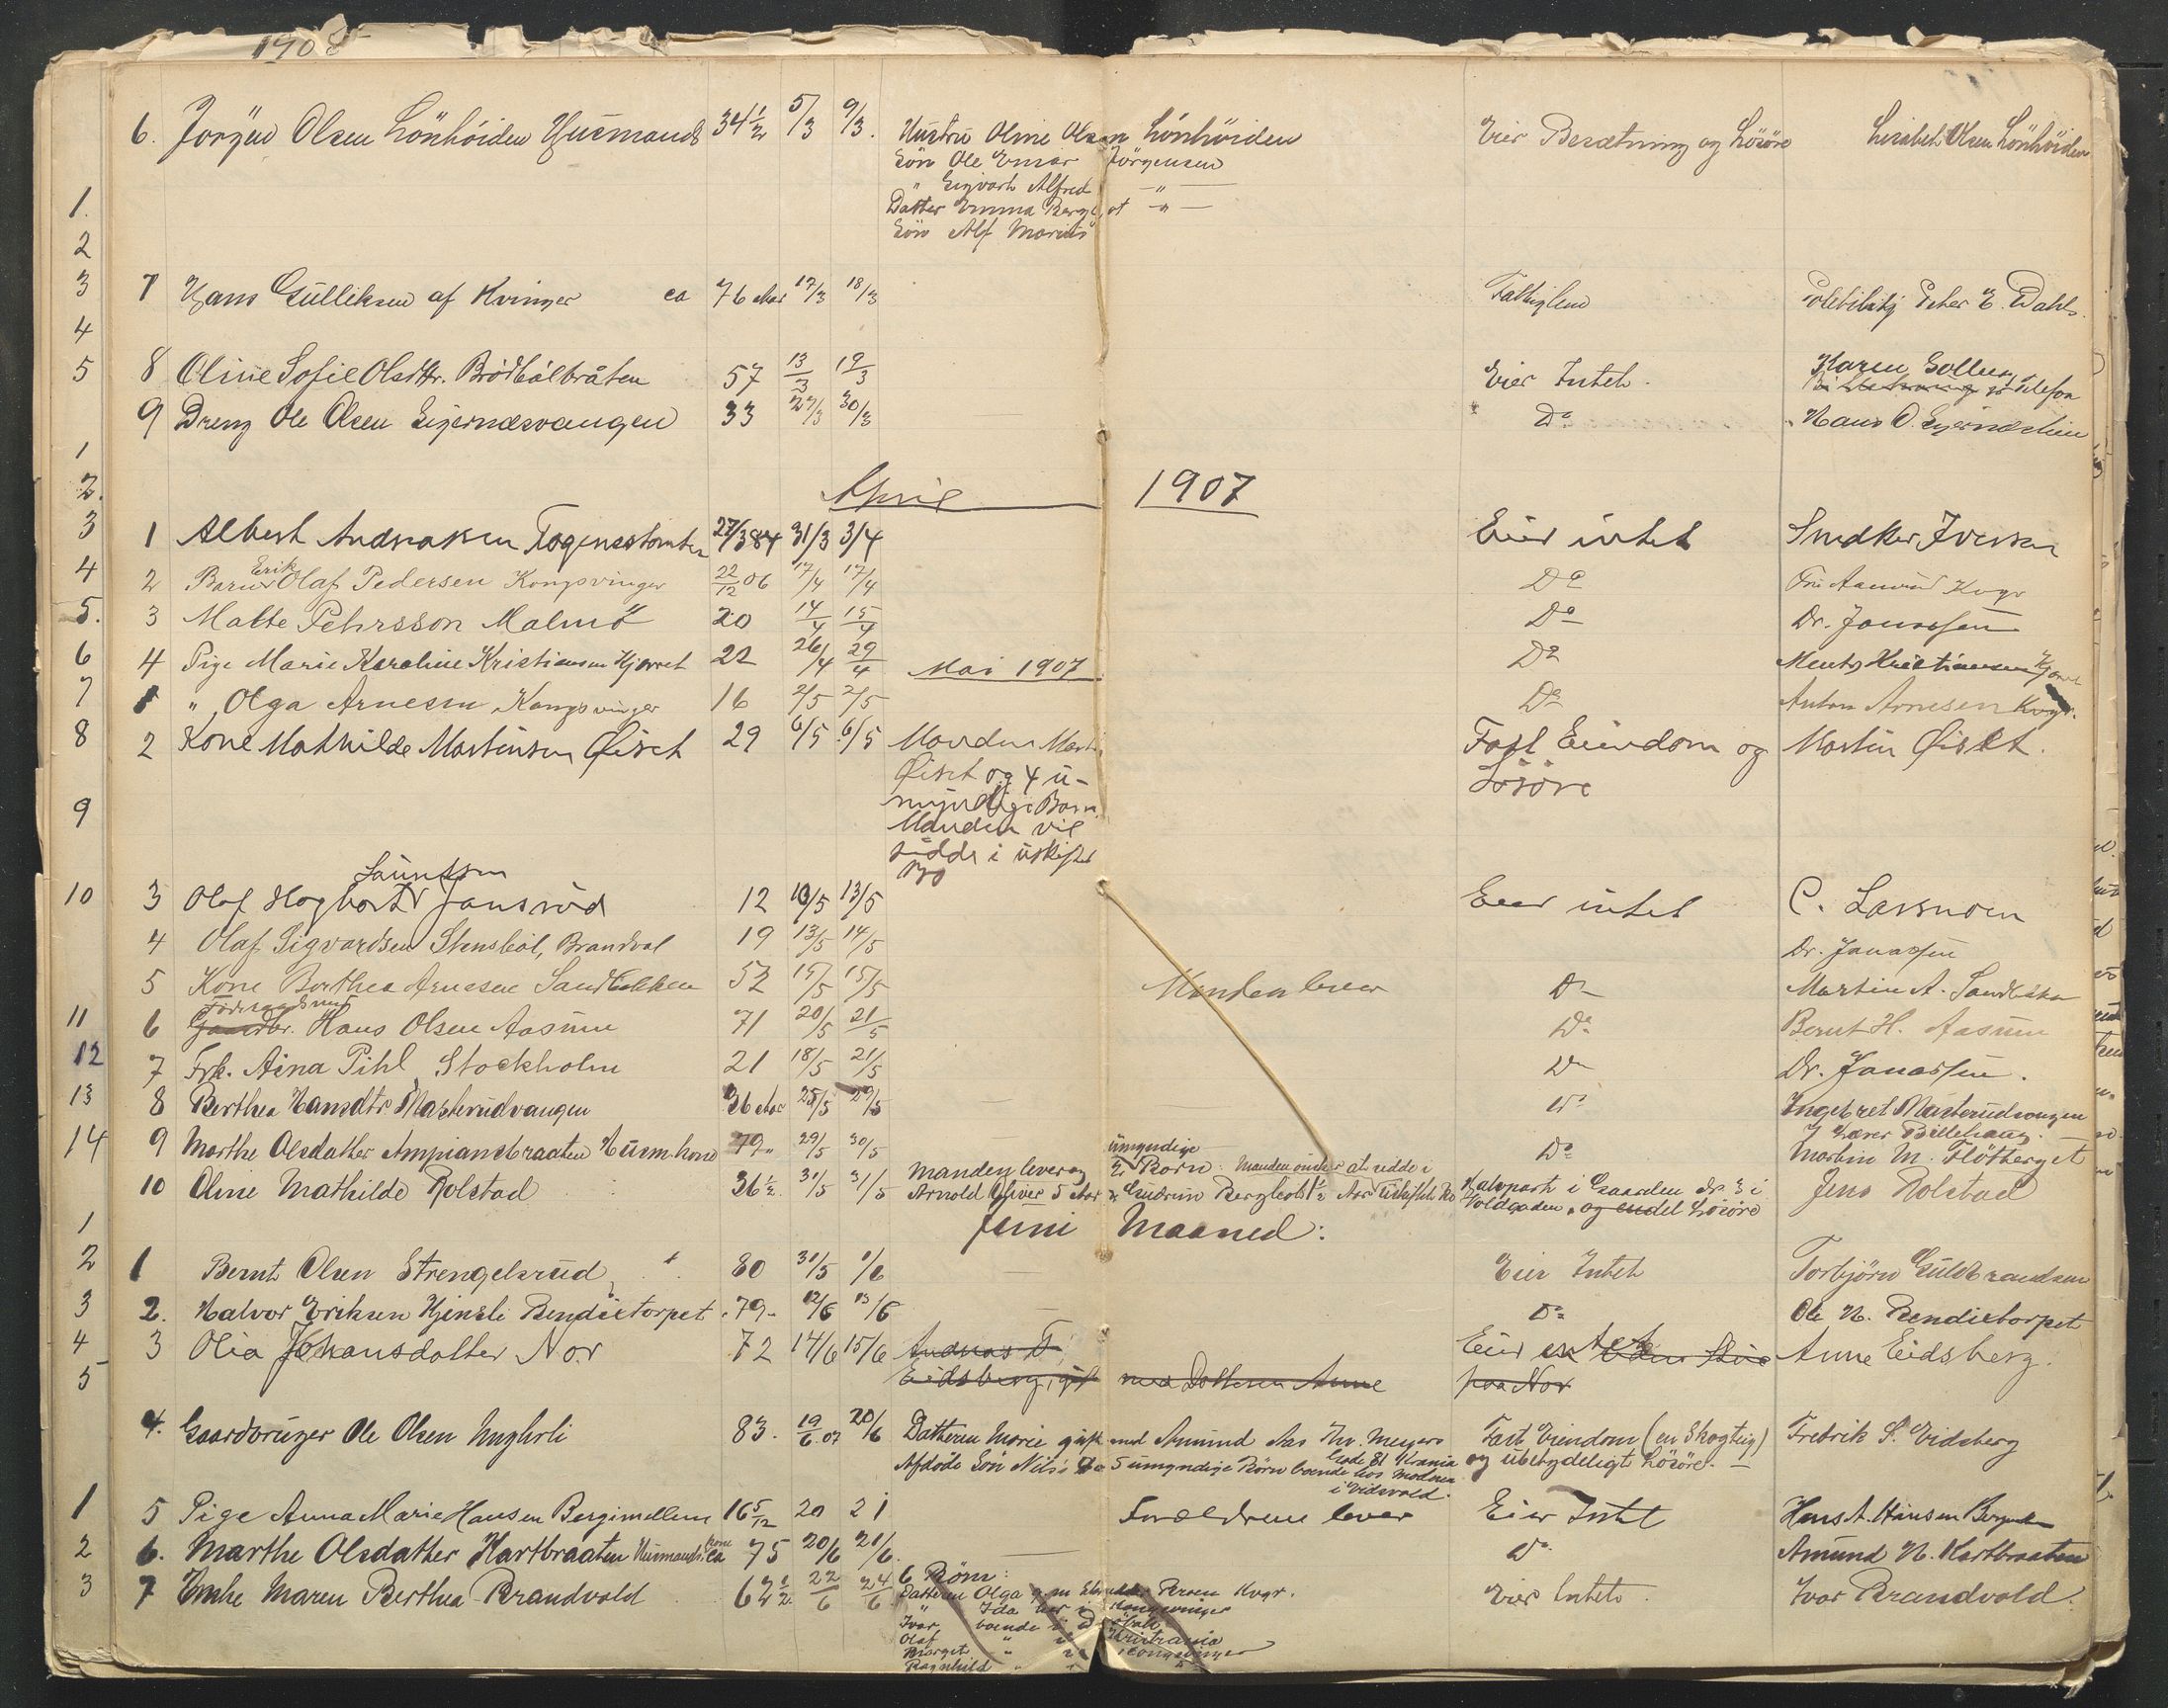 1905
6. Jorgen Olsen Lönhöiden Husmand 34 1/2 5/3 9/3. Hustru Oline Olsen Lönhöiden Eier Besætning og Lösöre Lisabeth Olsen Lönhöiden
Sön Ole Einar Jörgensen
" Sigvart Alfred — " —
1. Datter Emma Bergliot — " —
2 Sön Alf Marius
3 7 Hans Gulliksen af Kvinger ca 76 Aar 17/3 18/3 Fattiglem Peter E. Dahl
4
5 8 Oline Sofie Olsdtr. Brödbölbråten 57 13/3 19/3 Eier Intet. Karen Sollien
Telefon
9 Dreng Ole Olsen Sigernæsvangen 33 27/3 30/3 — Do Hans O. Sigernæslien
1
2. April 1907
3 1 Albert Andreasen 27/3 84 31/3 3/4 Eier intet Snedker Iversen
4 2 Barnet Erik Olaf Pedersen Kongsvinger 22/12 06 17/4 17/4 Do Fru Aamund Kvgr
5. 3 Malte Pehrsson Malmö 20 14/4 15/4 Do Dr. Jonassen
6 4 Pige Marie Karoline Kristiansen Hjerret 22 26/4 29/4 Mai 1907 Do Mentz Kristiansen
7 1 " Olga Arnesen Kongsvinger 16 2/5 2/5 Do Anton Arnesen Kvgr.
8 2 Kone Mathilde Martinsen Øiset 29 6/5 6/5 Manden Martin Fast Eiendom og Martin Øiset.
Øiset og 4 u- Lösöre
9 myndige Barn.
Manden vil
sidde i uskiftet
Bo
10 3 Olaf Hagbart Lauritsen Jansrud 12 10/5 13/5 Eier intet C. Larsnoen
4 Olaf Sigvardsen Stensböl, Brandval 19 13/5 14/5 Dr. Jonassen
5 Kone Berthea Arnesen Sandbakken 52 15/5 15/5 Manden lever Do Martin A. Sandbakken
11 6 Gaardbr. Hans Olsen Aasum 71 20/5 21/5 Do Bernt H. Aasum
12 7 Frk. Aina Pihl Stockholm 21 18/5 21/5 Do Dr. Jonassen.
13 8 Berthea Hansdtr Masterudvangen 36 Aar 25/5 29/5 — Do Ingebret Masterudvangen
14 9 Marthe Olsdatter Ampiansbraaten Husm.kone 79 29/5 30/5 Do Martin M. Flötberget
10 Oline Mathilde Rolstad 36 1/2 31/5 31/5 Manden lever og 2 umyndige Börn: Manden önsker at sidde i Halvpart i Gaarden No 3 i Jens Rolstad
Arnold Oliver 5 Aar & Gudrun Bergliot 1/2 Aar uskiftet Bo Voldgaden, og endel Lösöre
1 Juni Maaned:
2 1 Bernt Olsen Strengelsrud 80 31/5 1/6 — Eier Intet Torbjörn Guldbrandsen
3 2. Halvor Eriksen Hjensli Bendixtorpet 79 12/6 13/6 — Do Ole H. Bendixtorpet
4 3 Olia Johansdatter Nor 72 14/6 15/6 Andreas T. Eier intet Anne Eidsberg.
5 Eidsberg, gift med Datteren Anne paa Nor
4. Gaardbruger Ole Olsen Myhrli 83. 19/6 07 20/6 Datteren Marie gift med Amund Aas Thv. Meyers Fast Eiendom (en Skogteig) Fredrik S. Eidsberg
Gade 81 Krania
Afdöde Sön Nils's 5 umyndige Börn boende hos Moderen og ubetydeligt Lösöre. —
i Eidsvold.
1 5 Pige Anna Marie Hansen Bergimellem 16 5/12 20 21 Forældrene lever Eier Intet Hans A. Hansen
2 6. Marthe Olsdatter Hartbraaten Husmands Kone ca 75 20/6 21/6. — Do Amund H. Hartbraaten
3 7 Enke Maren Berthea Brandvold 62 1/2 22/6 24/6 6 Börn: Eier Intet. Ivar Brandvold.
Datteren Olga g. m. Persen Kvgr.
" Ida her i Kongsvinger
Ivar boende i
Olaf " i Kristiania
Margit " i Kongsvinger
Ragnhild " "